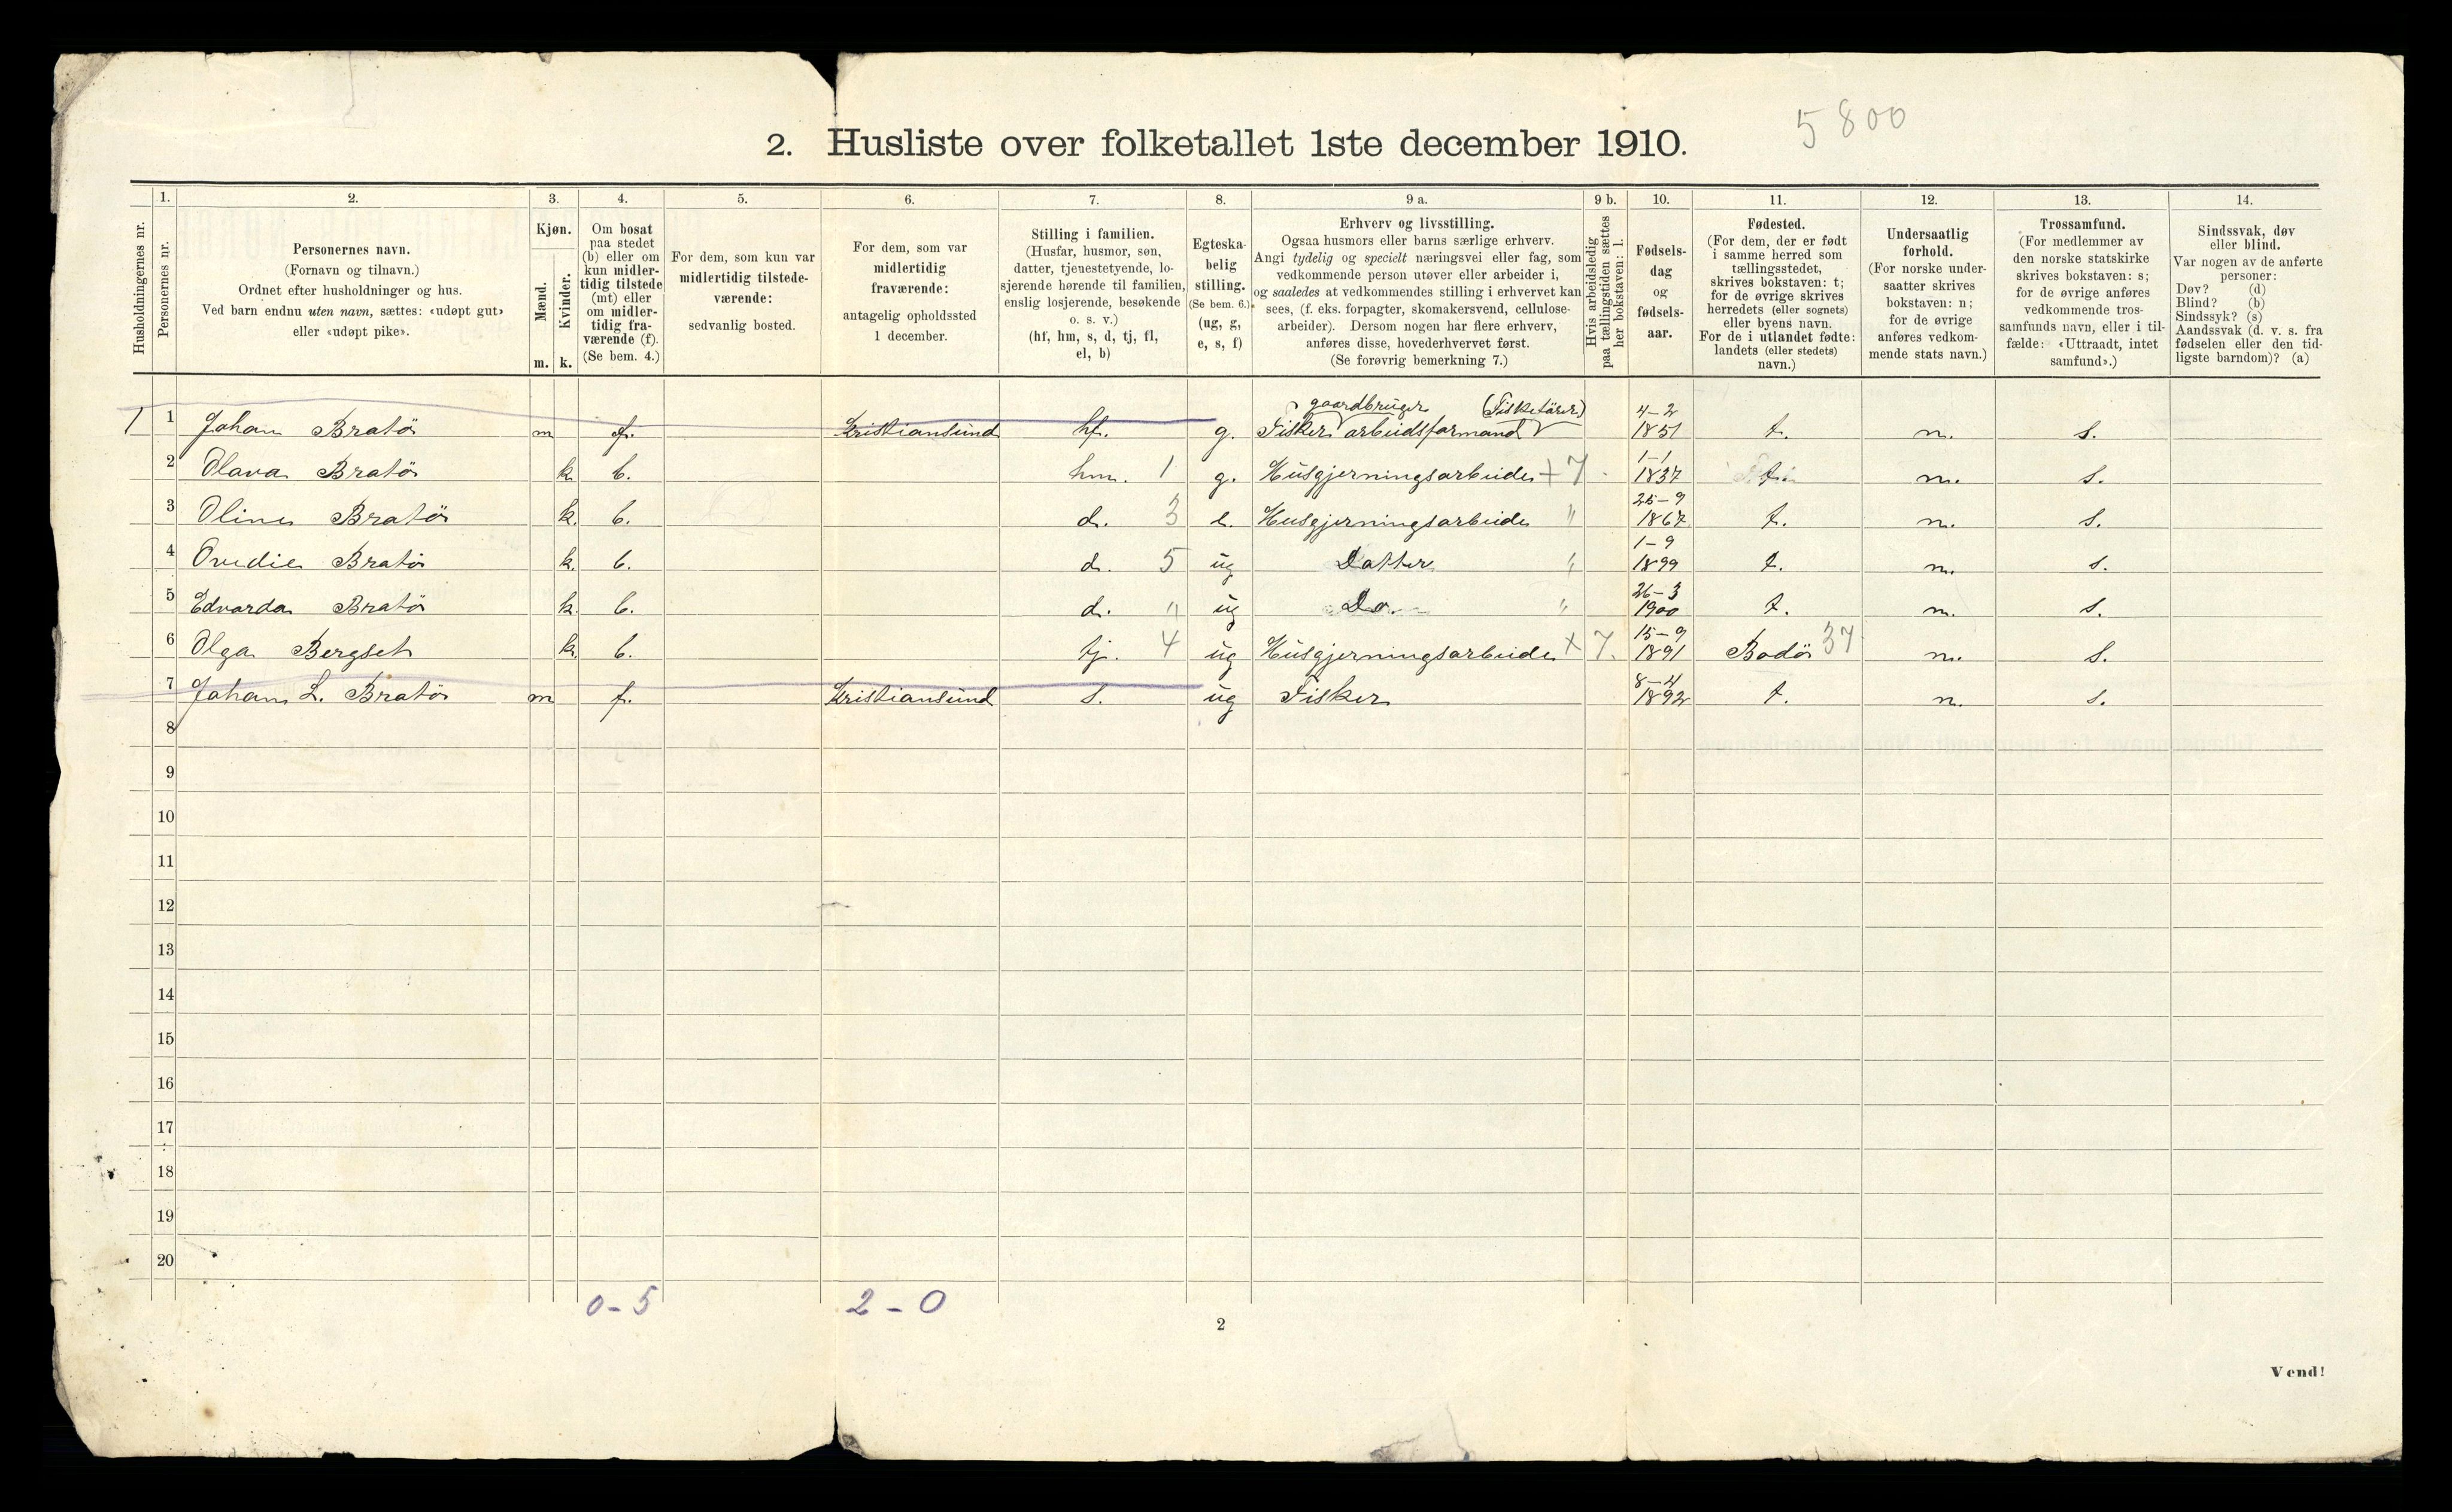 5800
2. Husliste over folketallet 1ste december 1910.
Husholdningernes nr.
1.
Personernes nr.
2.
Personernes navn.
(Fornavn og tilnavn.)
Ordnet efter husholdninger og hus.
Ved barn endnu uten navn, sættes: «udøpt gut»
eller «udøpt pike».
3.
Kjøn.
Mænd.
Kvinder.
m. k.
4.
Om bosat
paa stedet
(b) eller om
kun midler-
tidig tilstede
(mt) eller
om midler-
tidig fra-
værende (f).
(Se bem. 4.)
5.
For dem, som kun var
midlertidig tilstede-
værende:
sedvanlig bosted.
6.
For dem, som var
midlertidig
fraværende:
antagelig opholdssted
1 december.
7.
Stilling i familien.
(Husfar, husmor, søn,
datter, tjenestetyende, lo-
sjerende hørende til familien,
enslig losjerende, besøkende
o. s. v.)
(hf, hm, s, d, tj, fl,
el, b)
8.
Egteska-
belig
stilling.
(Se bem. 6.)
(ug, g,
e, s, f)
9 a.
Erhverv og livsstilling.
Ogsaa husmors eller barns særlige erhverv.
Angi tydelig og specielt næringsvei eller fag, som
vedkommende person utøver eller arbeider i,
og saaledes at vedkommendes stilling i erhvervet kan
sees, (f. eks. forpagter, skomakersvend, cellulose-
arbeider). Dersom nogen har flere erhverv,
anføres disse, hovederhvervet først.
(Se forøvrig bemerkning 7.)
9 b.
Hvis arbeidsledig
paa tællingstiden sættes
her bokstaven: l.
10.
Fødsels-
dag
og
fødsels-
aar.
11.
Fødested.
(For dem, der er født
i samme herred som
tællingsstedet,
skrives bokstaven: t;
for de øvrige skrives
herredets (eller sognets)
eller byens navn.
For de i utlandet fødte:
landets (eller stedets)
navn.)
12.
Undersaatlig
forhold.
(For norske under-
saatter skrives
bokstaven: n;
for de øvrige
anføres vedkom-
mende stats navn.)
13.
Trossamfund.
(For medlemmer av
den norske statskirke
skrives bokstaven: s;
for de øvrige anføres
vedkommende tros-
samfunds navn, eller i til-
fælde: «Uttraadt, intet
samfund».)
14.
Sindssvak, døv
eller blind.
Var nogen av de anførte
personer:
Døv? (d)
Blind? (b)
Sindssyk? (s)
Aandssvak (d. v. s. fra
fødselen eller den tid-
ligste barndom)? (a)
gaardbruger 4-2
1 1 Johan Bratö m f. Kristiansund hf. g. Fisker arbeidsformand 1851 t. n. s.
1-1
2 Olava Bratö k b. hm. 1 g. Husgjerningsarbeide + 7 1837 t. n. s.
25-9
3 Oline Bratö k. b. d. 3 e. Husgjerningsarbeide " 1867 t. n. s.
1-9
4 Ovedie Bratö k. b. d. 5 ug Datter " 1899 t. n. s.
26-3
5 Edvarda Bratö k. b. d. " ug Do. " 1900 t. n. s.
15-9
6 Olga Bergset k. b. tj. 4 ug Husgjerningsarbeide x 7. 1891 Bodö 37 n. s.
8-4
7 Johan L. Bratö m f. Kristiansund s. ug Fisker 1892 t. n. s.
8
9
10
11
12
13
14
15
16
17
18
19
20
0-5 2-0
2
Vend!